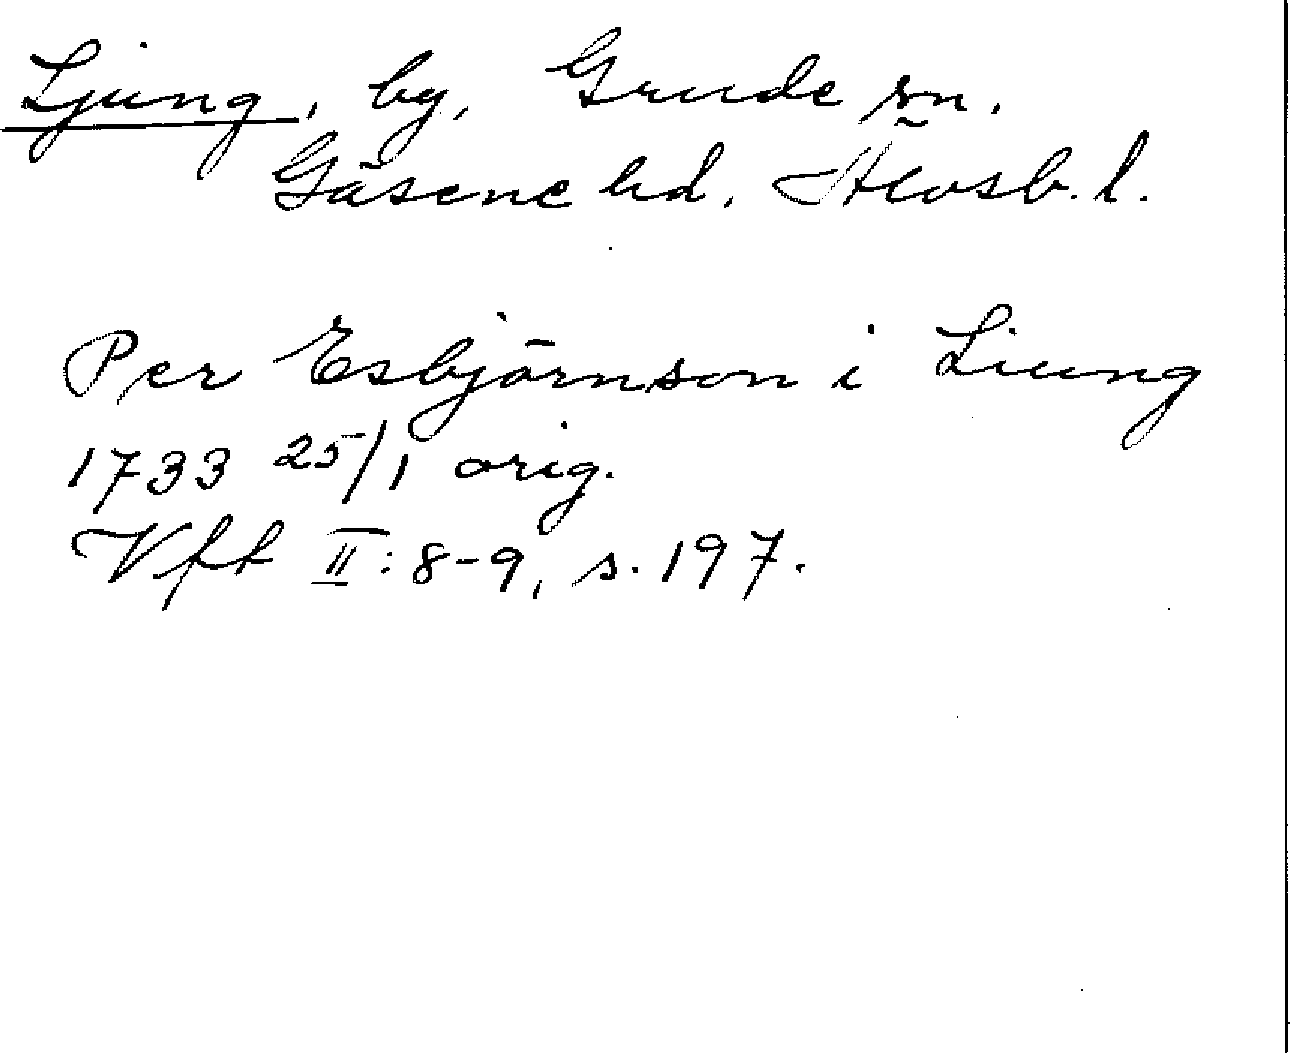 Ljung, by, Grude sn.
Gäsene hd, Älvsb. l.
Per Esbjörnson i Liung
1733 25/1 orig.
Vft II:8-9, s. 197.